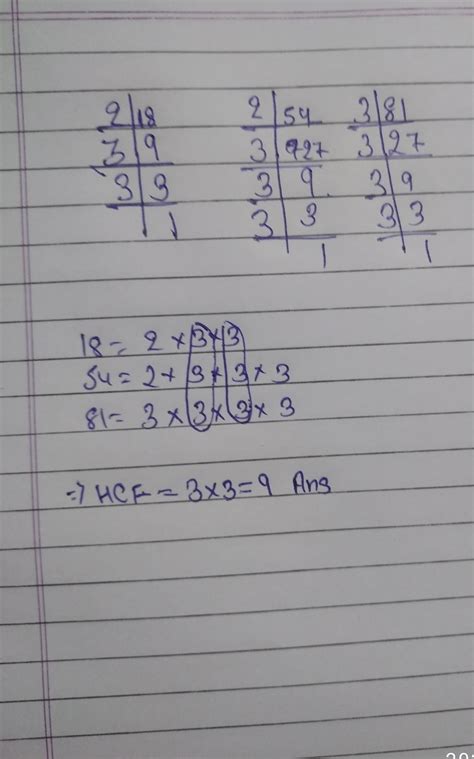 2 | 18 2 | 54 3 | 81
3 | 9 3 | 27 3 | 27
3 | 3 3 | 9 3 | 9
1 3 | 3 3 | 3
1 1
18 = 2 × 3 × 3
54 = 2 × 3 × 3 × 3
81 = 3 × 3 × 3 × 3
⇒ HCF = 3×3 = 9 Ans